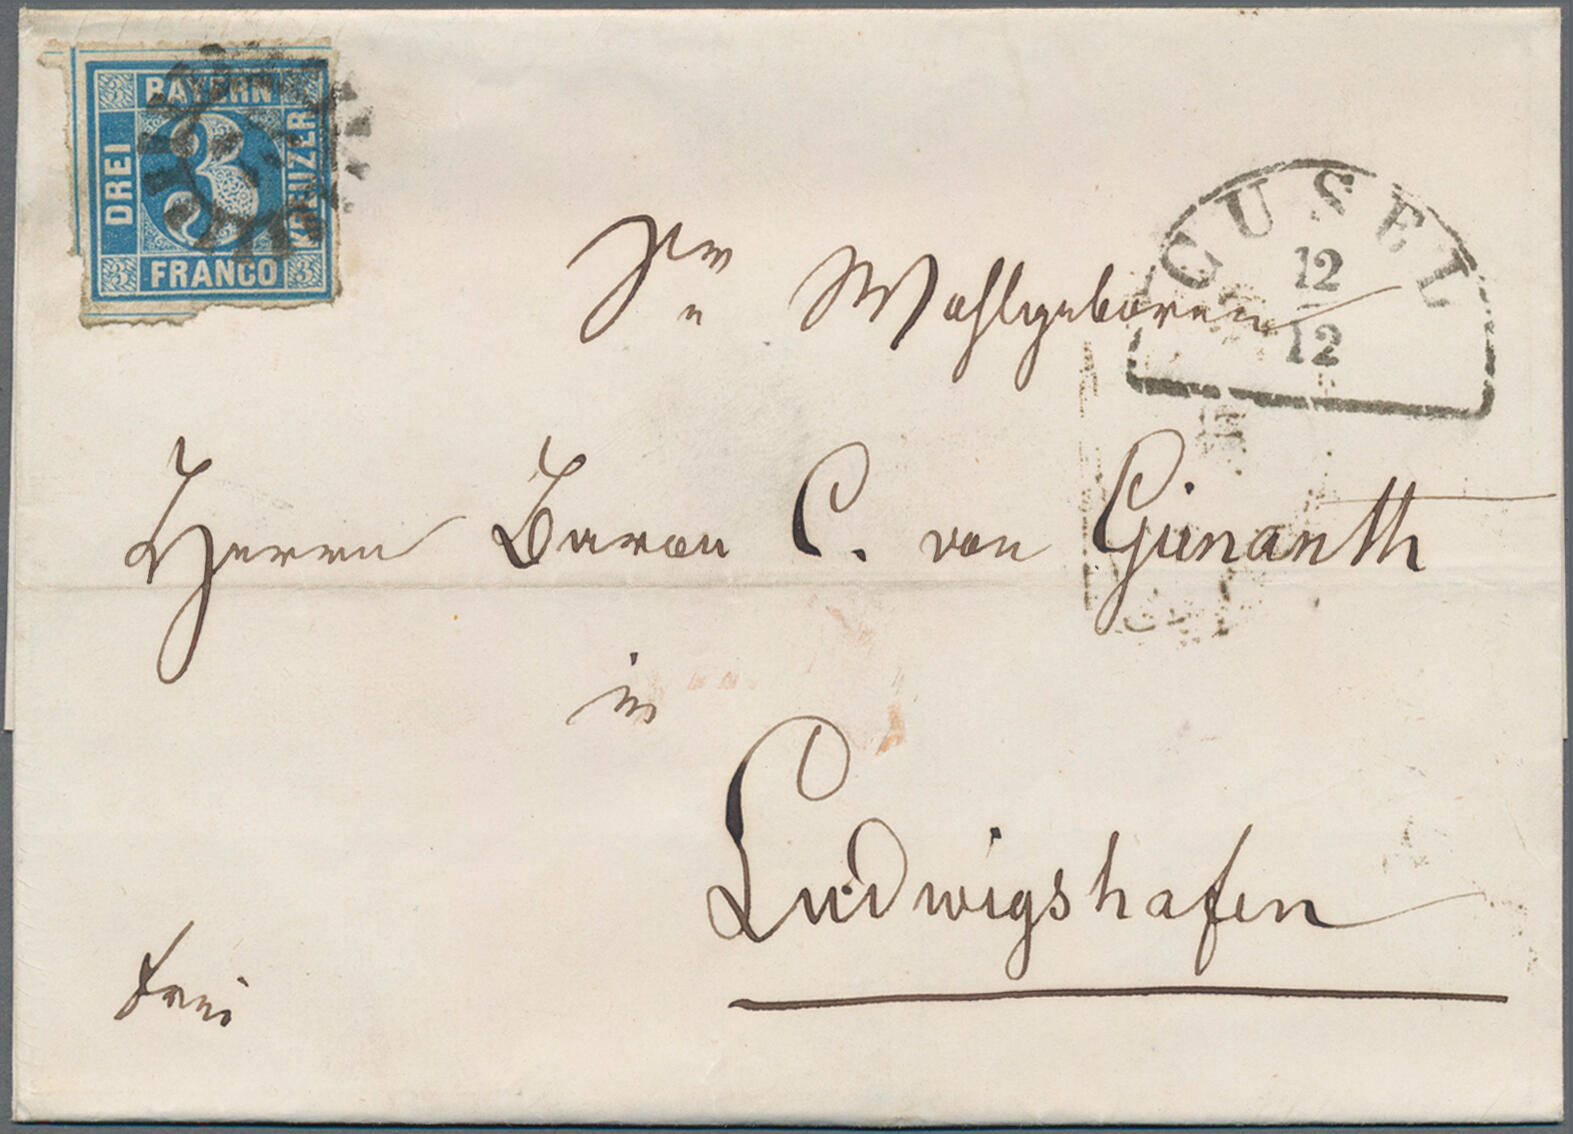 BAYERN
DREI
3
KREUZER
FRANCO
3 3 3 3
CUSEL
12
12
Sr Wohlgeboren
Herrn Baron C. von Gienanth
in
Ludwigshafen
frei